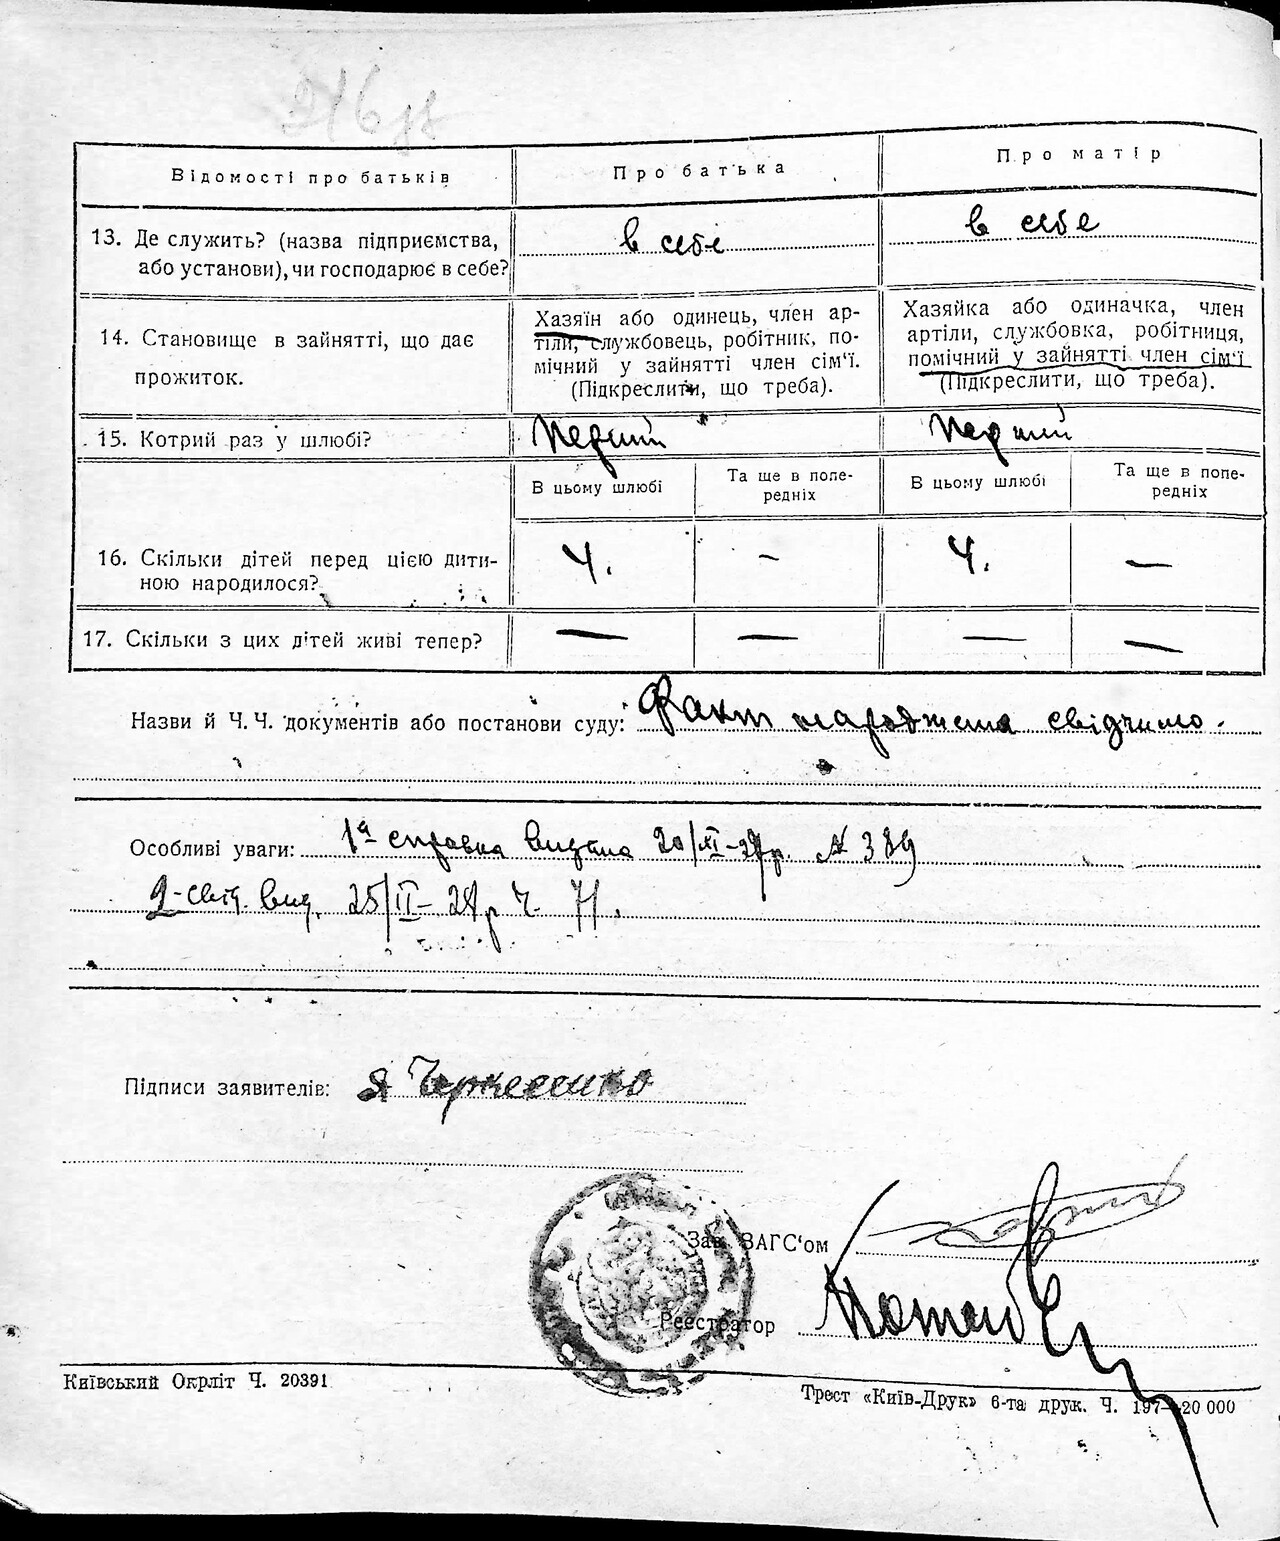 246 зв
Відомості про батьків
Про батька
Про матір
13. Де служить? (назва підприємства, або установи), чи господарює в себе?
в себе
в себе
14. Становище в зайнятті, що дає прожиток.
Хазяїн або одинець, член ар-
тіли, службовець, робітник, по-
мічний у зайнятті член сім'ї.
(Підкреслити, що треба).
Хазяйка або одиначка, член
артіли, службовка, робітниця,
помічний у зайнятті член сім'ї
(Підкреслити, що треба).
15. Котрий раз у шлюбі?
Перший
Перший
В цьому шлюбі
Та ще в попе-
редніх
В цьому шлюбі
Та ще в попе-
редніх
16. Скільки дітей перед цією дити-
ною народилося?
4.
–
4.
—
17. Скільки з цих дітей живі тепер?
—
—
—
—
Назви й Ч.Ч. документів або постанови суду: Факт народження свідчимо.
Особливі уваги: 1а справка видана 20/XI-27р. № 389
2-свід. вид. 25/II-28р Ч. 71.
Підписи заявителів: Я
Зав. ЗАГС'ом
Реєстратор
Київський Окрліт Ч. 20391
Трест «Київ-Друк» 6-та друк. Ч. 197—20 000